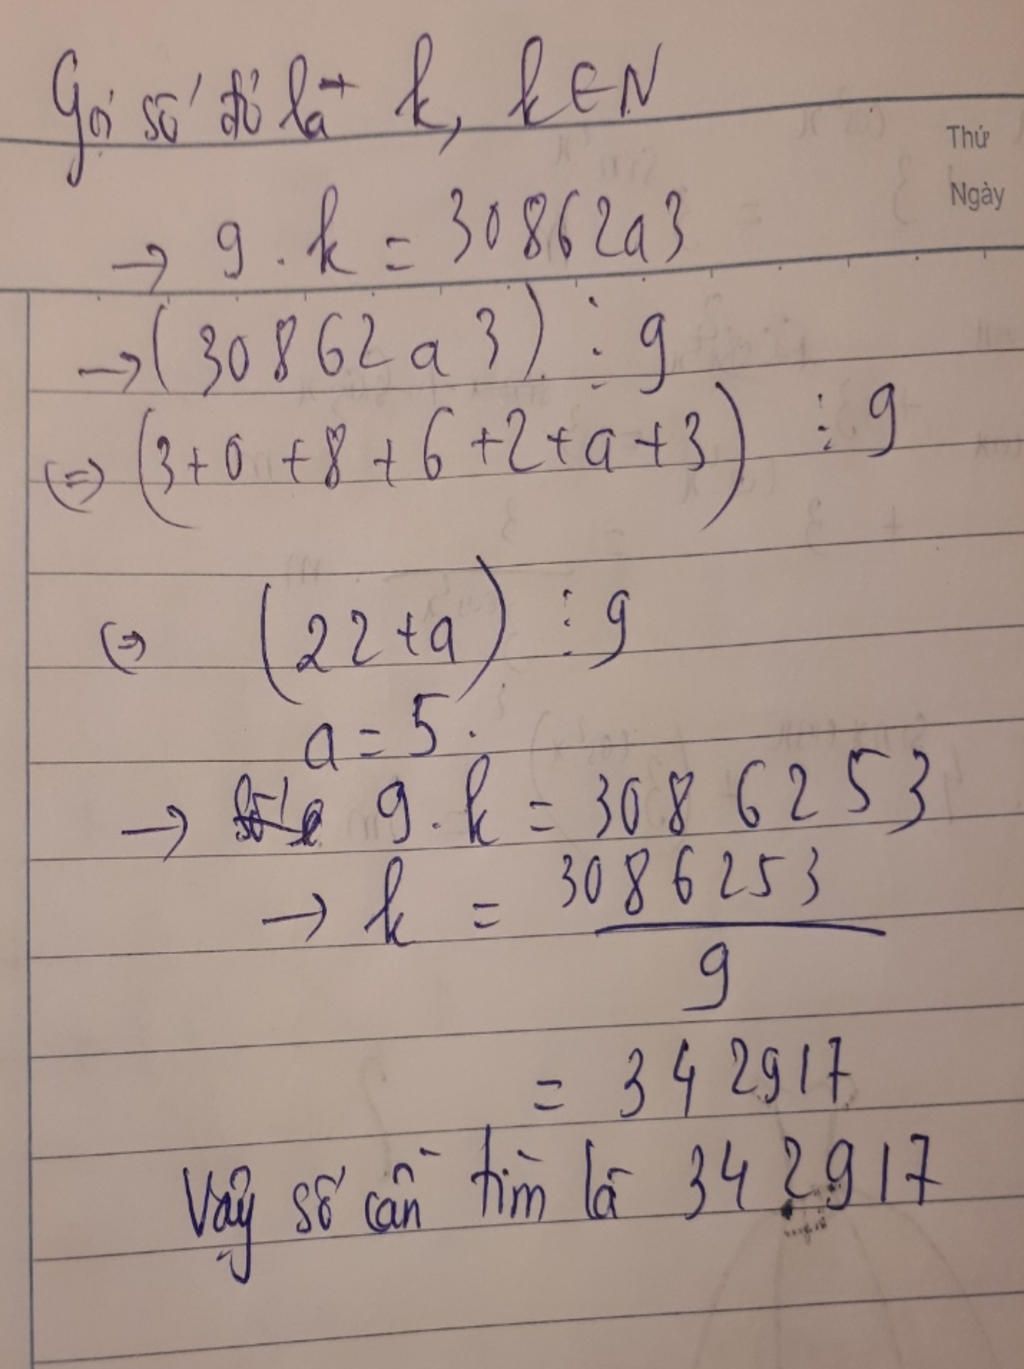 Gọi số đó là k, k ∈ N
Thứ
Ngày
→ 9 . k = 30862a3
→ (30862a3) ⋮ 9
(=) (3+0+8+6+2+a+3) ⋮ 9
(=) (22+a) ⋮ 9
a = 5.
→ 9.k = 3086253
→ k = 3086253
9
= 342917
Vậy số cần tìm là 342917